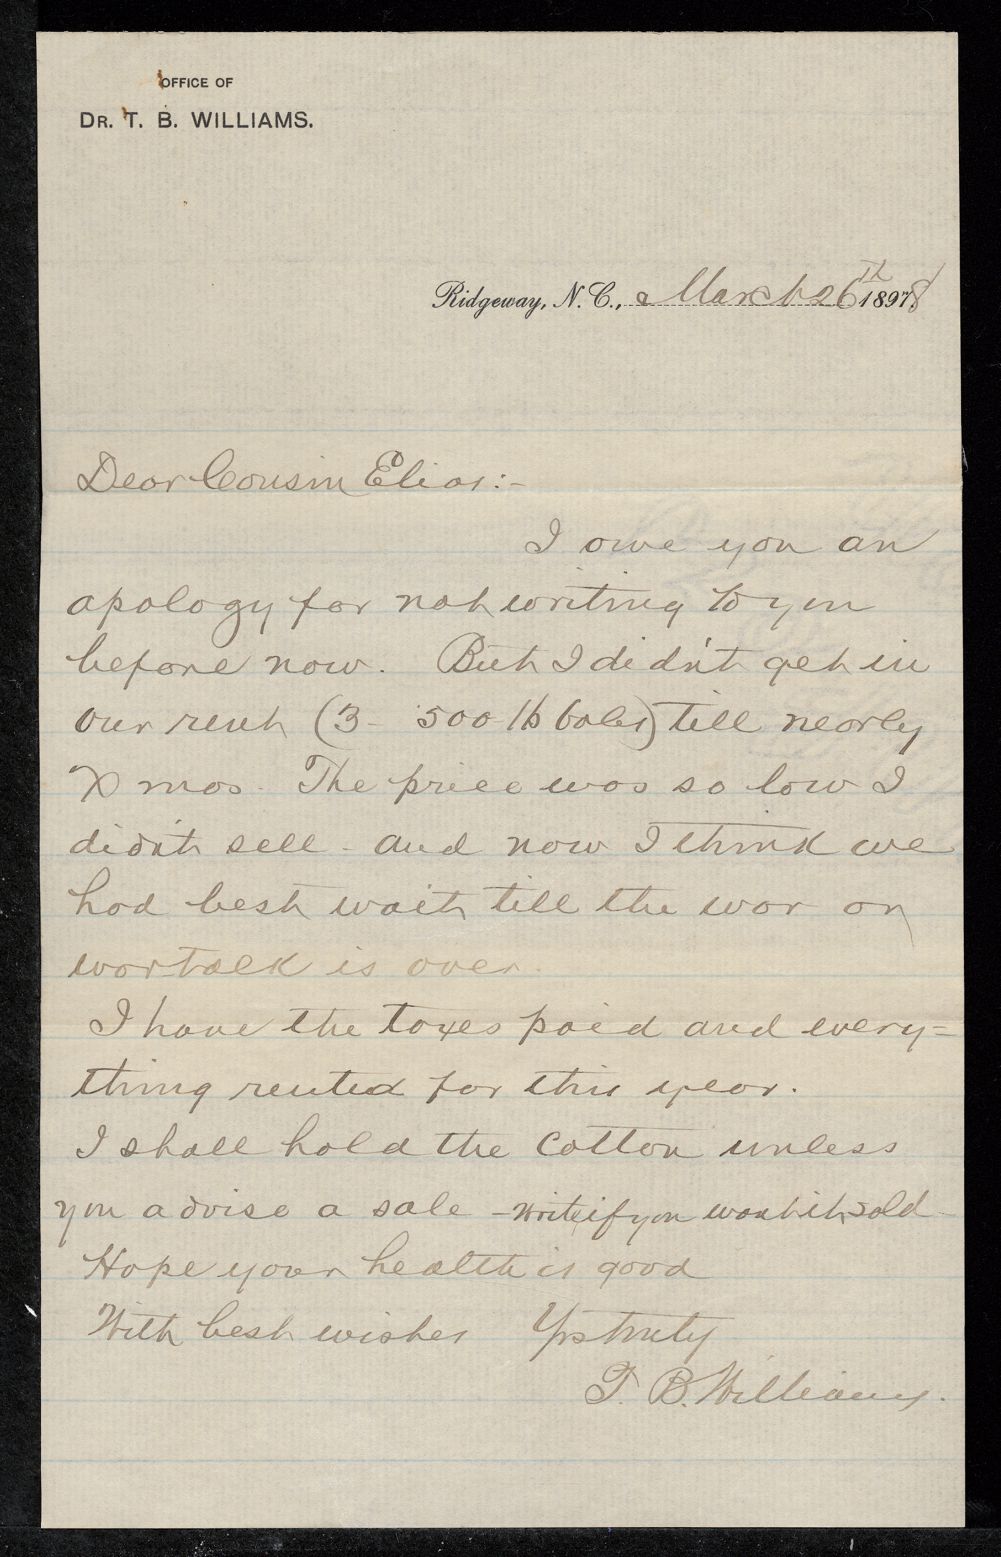 OFFICE OF
DR. T. B. WILLIAMS.
Ridgeway, N. C., March 26th 1898
Dear Cousin Elias:-
I owe you an
apology for not writing to you
before now. But I didn't get in
our rent (3 - 500 lb bales) till nearly
Xmas. The price was so low I
didn't sell - and now I think we
had best wait till the war or
war talk is over.
I have the taxes paid and every=
thing rented for this year.
I shall hold the cotton unless
you advise a sale - write if you want it sold -
Hope your health is good
With best wishes Yrs truly
T. B. Williams.